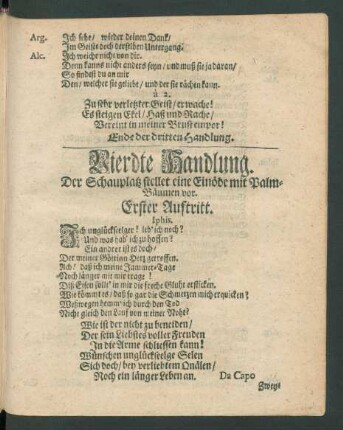 Arg. Ich sehe/ wieder deinen Danck/
Im Geiste doch derselben Untergang.
Alc. Ich weiche nicht von dir.
Denn kanns nicht anders seyn/ und muß sie ja daran/
So findest du an mir
Den/ welcher sie geliebt/ und der sie rächen kann.
à 2.
Zu sehr verletzter Geist/ erwache!
Es steigen Ekel/ Haß und Rache/
Vereint in meiner Brust empor!
Ende der dritten Handlung.
Vierdte Handlung.
Der Schauplatz stellet eine Einöde mit Palm-
Bäumen vor.
Erster Auftritt.
Iphis.
Ich unglückselger! leb' ich noch?
Und was hab' ich zu hoffen?
Ein andrer ist es doch/
Der meiner Göttinn Herz getroffen.
Ach/ daß ich meine Jammer-Tage
Noch länger mit mir trage!
Diß Eisen soll/ in mir die freche Gluht ersticken.
Wie kömmt es/ daß so gar die Schmerzen mich erquicken?
Weßwegen hemm' ich durch den Tod
Nicht gleich den Lauf von meiner Noht?
Wie ist der nicht zu beneiden/
Der sein Liebstes voller Freuden
In die Arme schliessen kann!
Wünschen unglückselge Selen
Sich doch/ bey verliebtem Quälen/
Noch ein länger Leben an. Da Capo
Zwey-